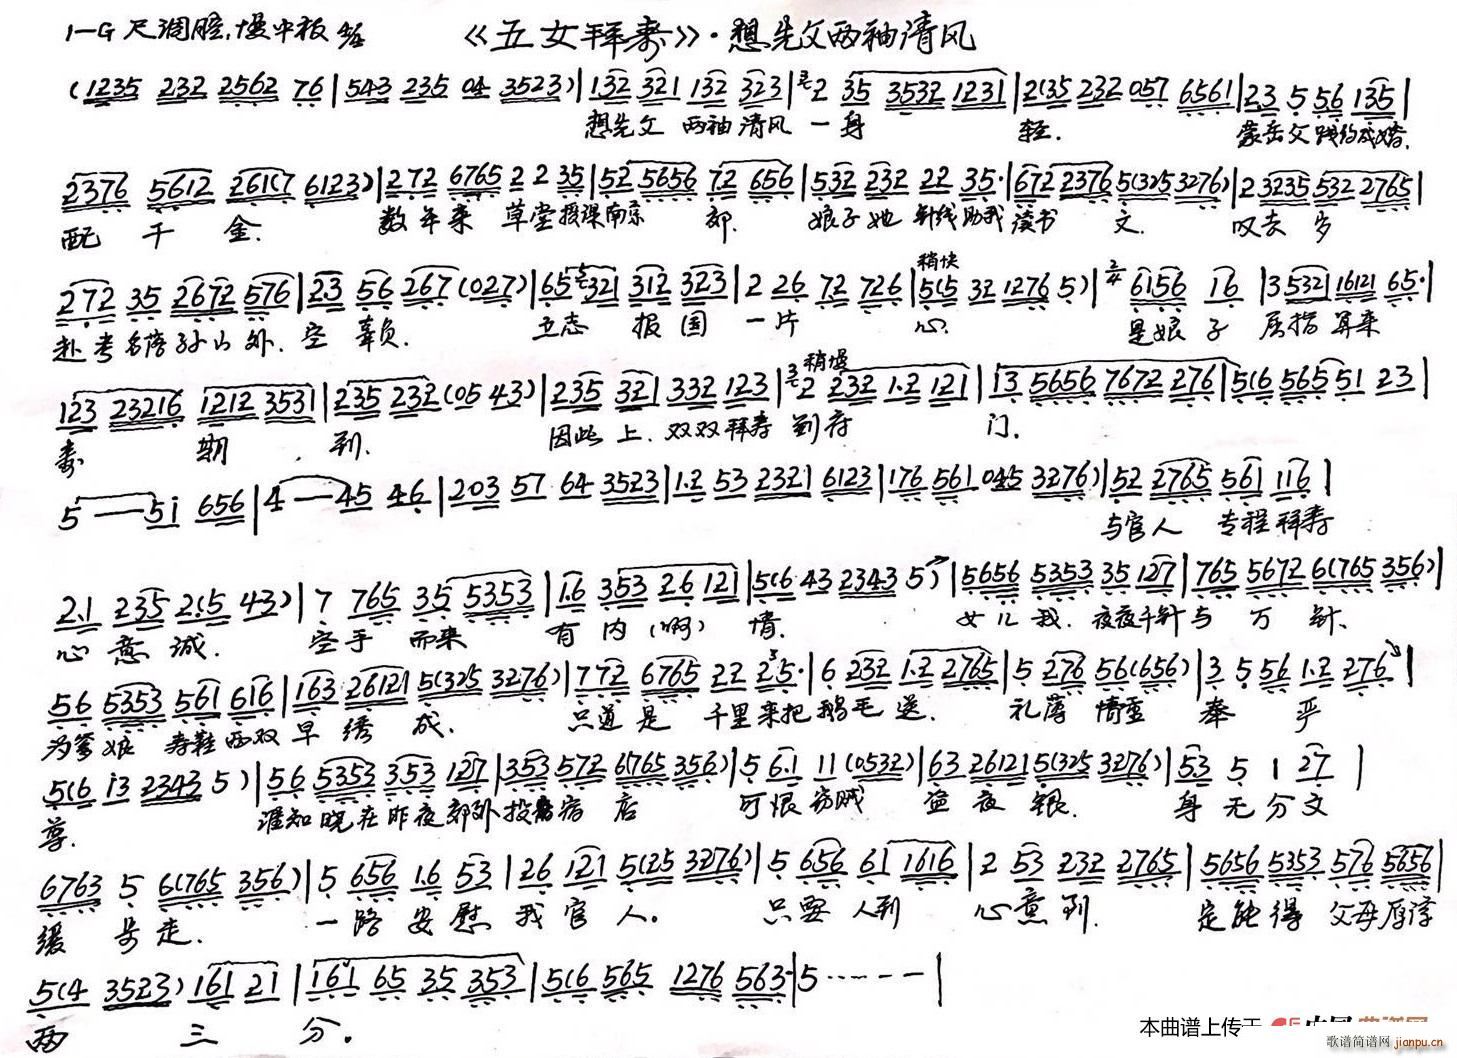 1=G 尺调腔.慢中板 4/4 《五女拜寿》·想先父两袖清风
(1235 232 2562 76|543 235 04 3523)|132 321 132 323|2 35 3532 1231|2(35 232 057 6561|23 5 56 135|
想先父 两袖清风 一身 轻. 蒙岳父践约成婚.
2376 5612 261(7 6123)|272 6765 2 2 35|52 5656 72 656|532 232 22 35·|672 2376 5(325 3276)|2 3235 532 2765|
配 千 金. 数年来 草堂授课南京 郊. 娘子她 针线助我读书 文. 叹去 岁
272 35 2672 576|23 56 267(027)|65 321 312 323|2 26 72 726|稍快 5(5 32 1276 5)|2/4 6156 16|3532 16121 65·|
赴考名落孙山外.空 辜负. 立志 报国 一片 心. 是娘子 屈指算来
123 23216 1212 3531|235 232(05 43)|235 321 332 123|稍慢 2 232 1·2 121|13 5656 7672 276|5(6 565 51 23|
寿 期 到. 因此上.双双拜寿 到府 门.
5——5i 656|4——45 46|203 57 64 3523|1·2 53 2321 6123|176 561 045 3276)|52 2765 561 116|
与官人 专程拜寿
2·1 235 2(5 43)|7 765 35 5353|1·6 353 26 121|5(6 43 2343 5)|5656 5353 35 127|765 5672 6(765 356)|
心意诚. 空手 而来 有内(啊) 情. 女儿我.夜夜千针与 万 针、
56 5353 561 616|163 26121 5(325 3276)|772 6765 22 2 5·|6 232 1·2 2765|5 276 56(656)|3 5 56 1·2 276|
为爹娘 寿鞋两双早 绣 成. 只道是 千里来把鹅毛送. 礼薄情重 奉 严
5(6 i3 2343 5)|56 5353 353 127|353 572 6(765 356)|5 6·1 11(0532)|63 26121 5(325 3276)|53 5 1 27|
尊. 谁知晓在昨夜郊外投宿 店 可恨窃贼 盗夜 银. 身无分文
6763 5 6(765 356)|5 656 1·6 53|26 121 5(25 3276)|5 656 61 1616|2 53 232 2765|5656 5353 576 5656|
缓 步走. 一路安慰我官 人。 只要人到 心意到. 定能得 父母厚谆
5(4 3523) 161 21|161 65 35 353|5(6 565 1276 563·|5······—|
两 三 分。
本曲谱上传于
歌谱简谱网 jianpu.cn